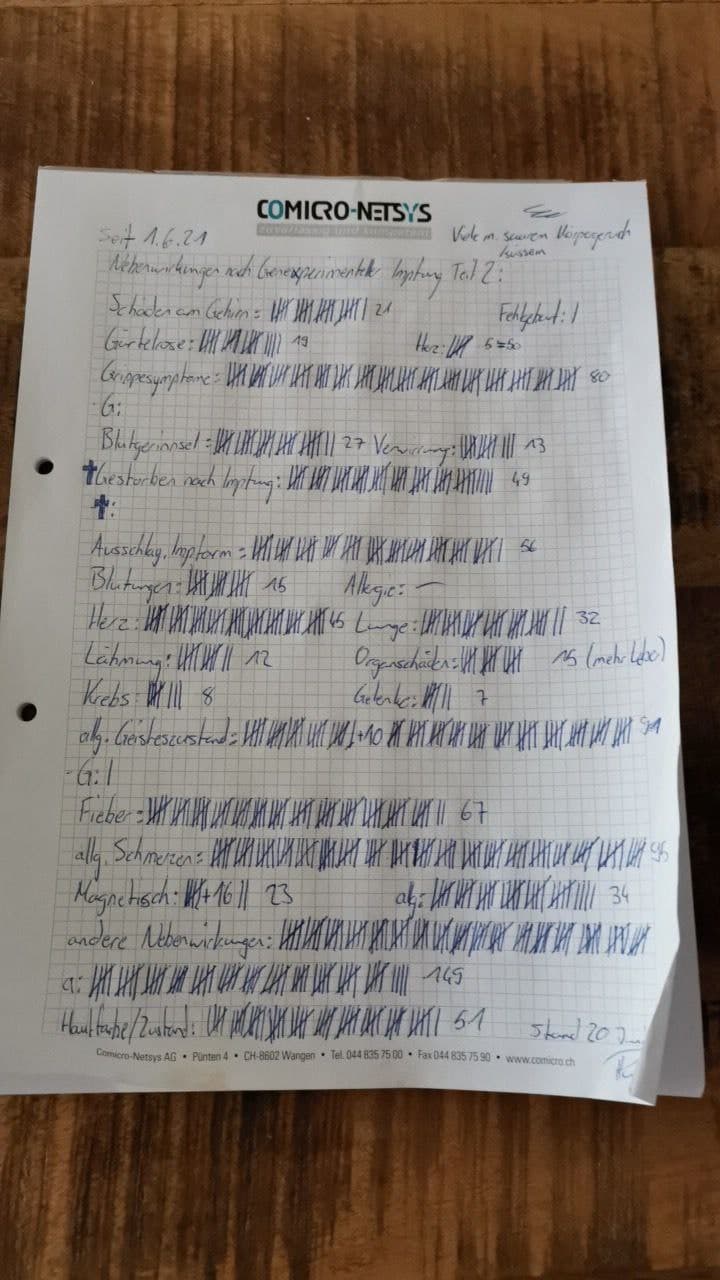 COMICRO-NETSYS
zuverlässig und kompetent
Seit 1.6.21
Viele m. saurem Körpergeruch
Nebenwirkungen nach Genexperimenteller Impfung Teil 2:
Schäden am Gehirn = 21 Fehlgeburt: I
Gürtelrose: 19 Herz: 5=50
Grippesymptome: 80
G:
Blutgerinnsel = 27 Verwirrung: 13
✝ Gestorben nach Impfung: 49
✝:
Ausschlag, Impfarm = 56
Blutungen: 15 Allergie: —
Herz: 45 Lunge: 32
Lähmung: 12 Organschäden: 15 (mehr Leber)
Krebs: 8 Gelenke: 7
allg. Geisteszustand = +10
G: I
Fieber = 67
allg. Schmerzen = 95
Magnetisch: +16 II 23 allg: 34
andere Nebenwirkungen:
a: 149
Hautfarbe/Zustand: 51 Stand 20
Comicro-Netsys AG • Pünten 4 • CH-8602 Wangen • Tel. 044 835 75 00 • Fax 044 835 75 90 • www.comicro.ch